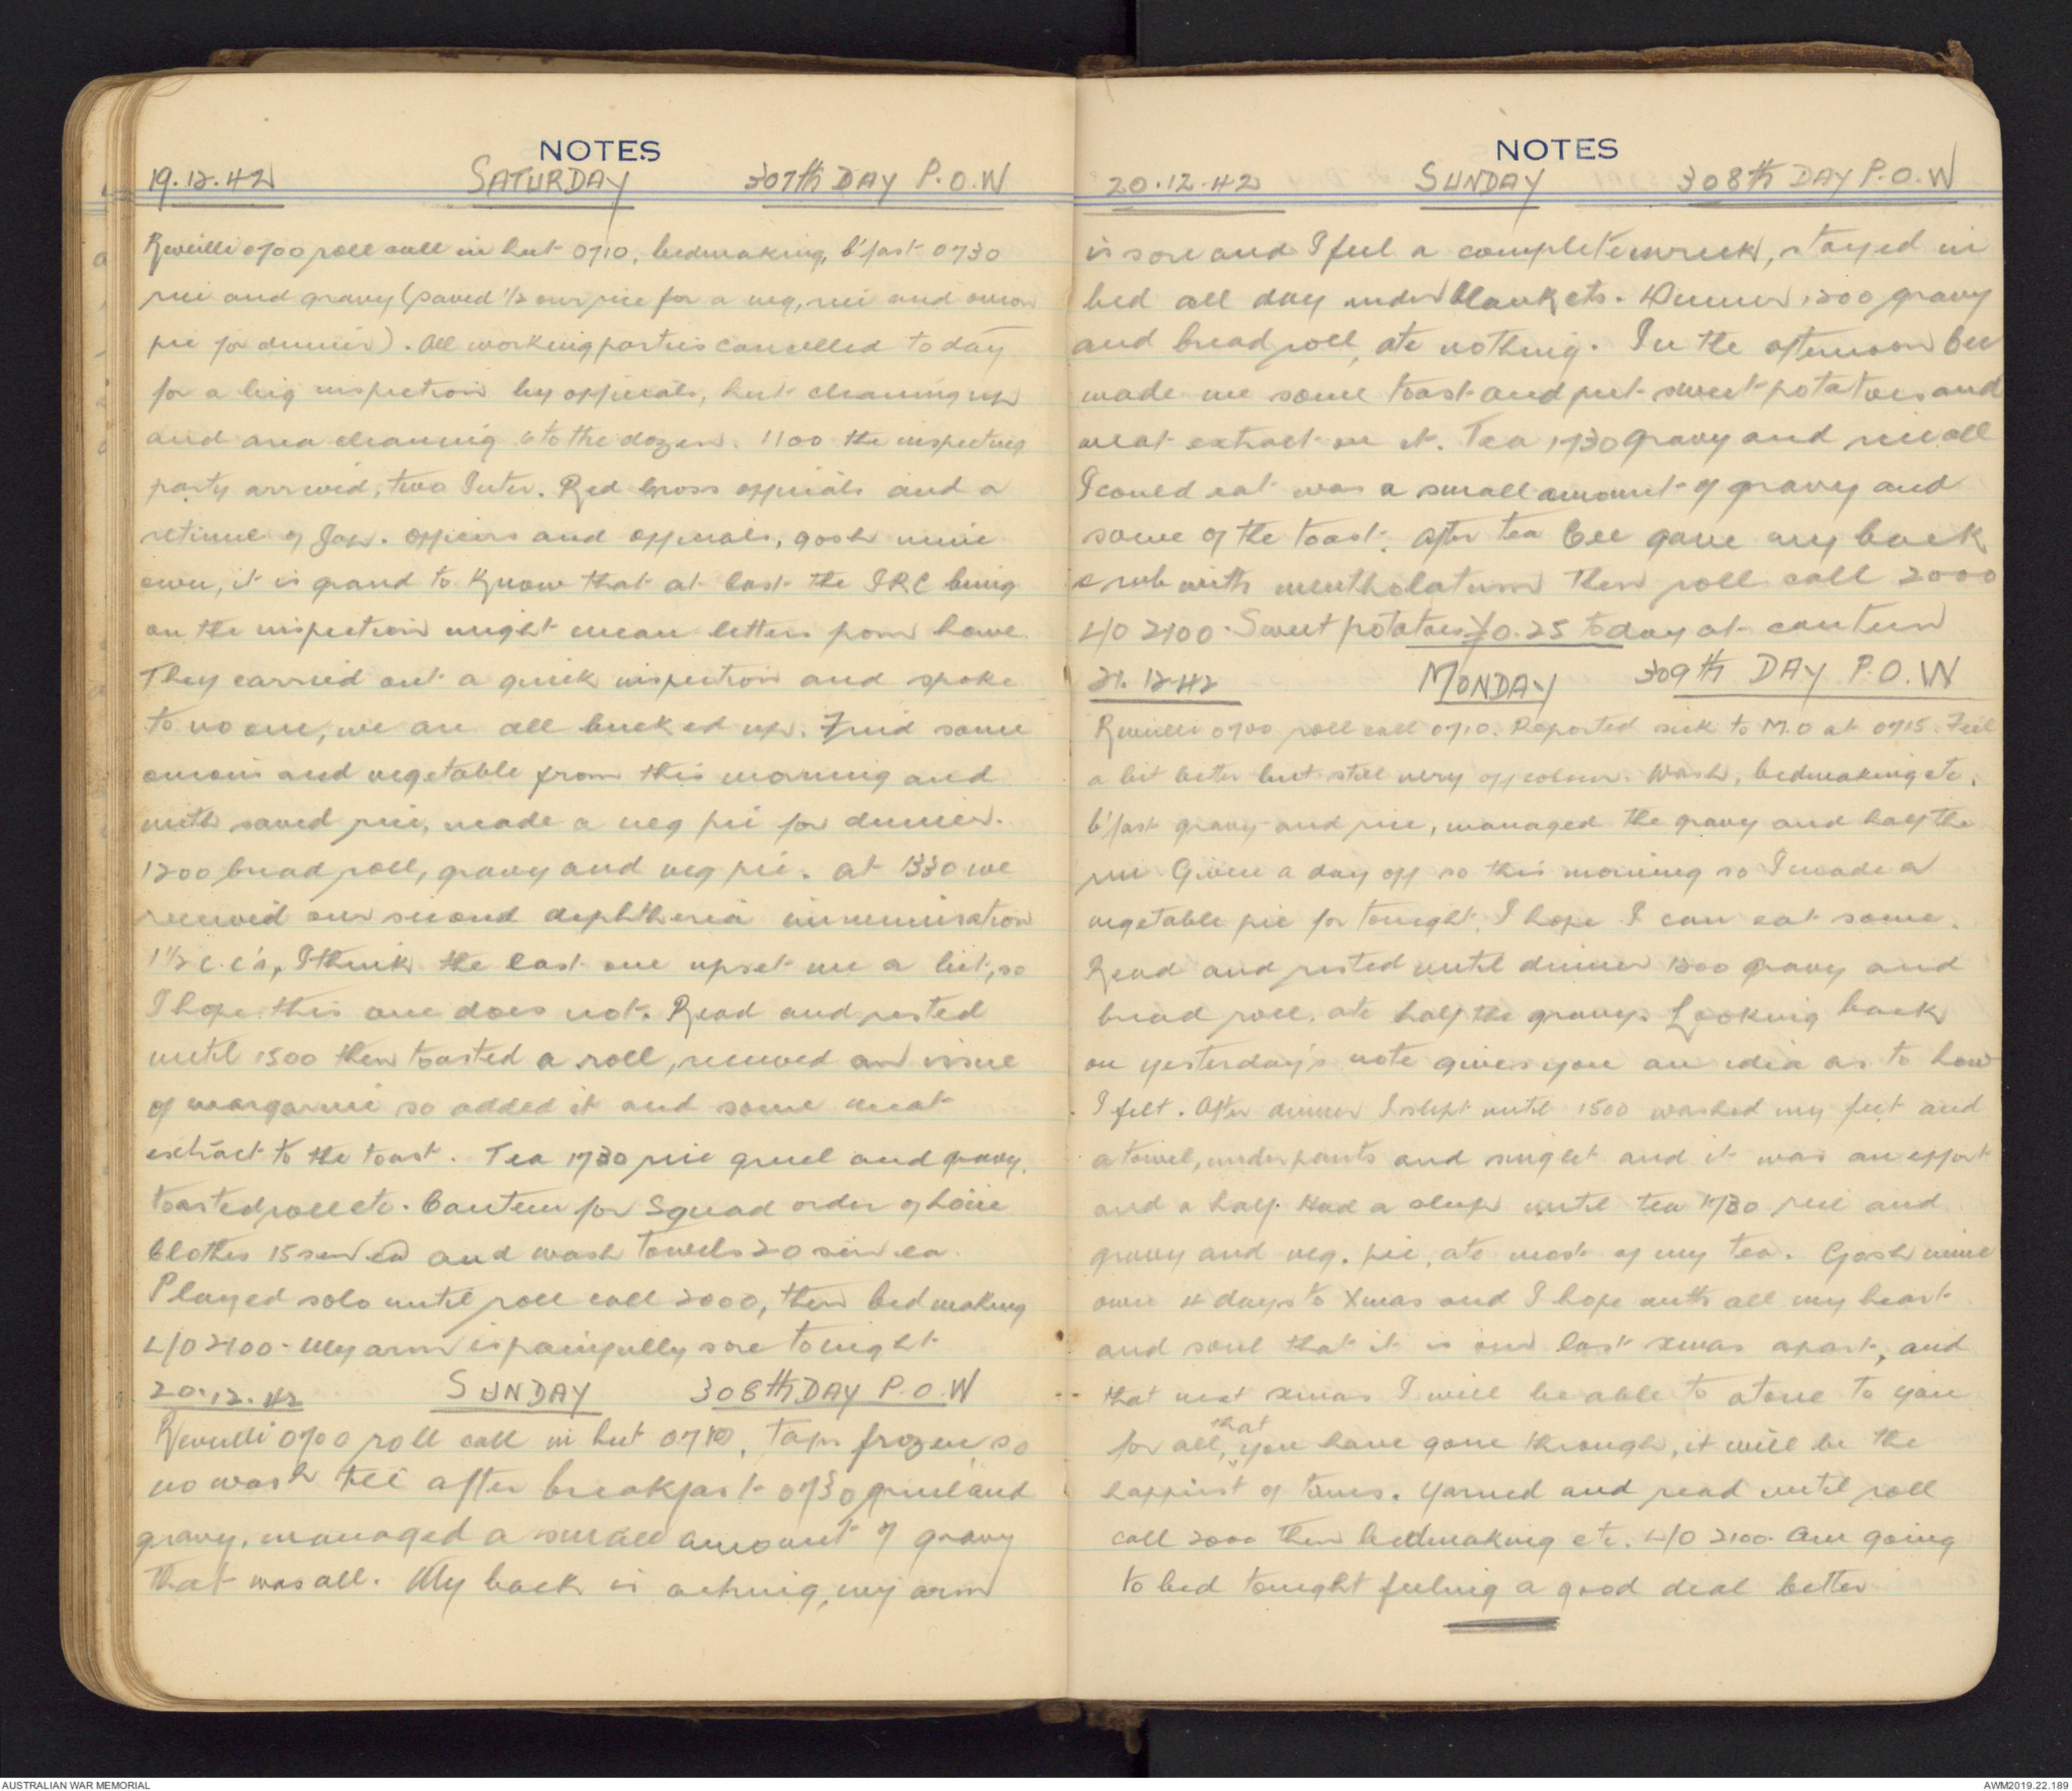 NOTES
19.12.42 SATURDAY 307th DAY P.O.W
Reveilli 0700 roll call in hut 0710, bedmaking, b'fast 0730
rice and gravy (saved 1/2 our rice for a veg, rice and onion
pie for dinner). All working parties cancelled today
for a big inspection by officials, hut cleaning up
and area cleaning 6 to the dozen. 1100 the inspecting
party arrived, two Inter. Red Cross officials and a
retinue of Jap. officers and officials, gosh mine
own, it is grand to know that at last the IRC being
on the inspection might mean letters from home.
They carried out a quick inspection and spoke
to no one, we are all bucked up. Fried some
onions and vegetable from this morning and
with saved rice, made a veg pie for dinner.
1200 bread roll, gravy and veg pie. At 1330 we
received our second diphtheria immunisation
1 1/2 c.c's, I think the last one upset me a bit, so
I hope this one does not. Read and rested
until 1500 then toasted a roll, received an issue
of margarine so added it and some meat
extract to the toast. Tea 1730 rice gruel and gravy,
toasted roll etc. Canteen for Squad order of
Clothes 15 sen ea and wash towels 20 sen ea.
Played solo until roll call 2000, then bedmaking
L/O 2100. My arm is painfully sore tonight
20.12.42 SUNDAY 308th DAY P.O.W
Reveilli 0700 roll call in hut 0710, taps frozen, so
no wash till after breakfast 0730 gruel and
gravy, managed a small amount of gravy
that was all. My back is aching, my arm
NOTES
20.12.42 SUNDAY 308th DAY P.O.W
is sore and I feel a complete wreck, stayed in
bed all day under blankets. Dinner 1200 gravy
and bread roll, ate nothing. In the afternoon Cec
made me some toast and put sweet potatoes and
meat extract on it. Tea 1730 gravy and rice all
I could eat was a small amount of gravy and
some of the toast. After tea Cec gave my back
a rub with mentholatum then roll call 2000
L/O 2100. Sweet potatoes ¥0.25 today at canteen
21.12.42 MONDAY 309th DAY P.O.W
Reveilli 0700 roll call 0710. Reported sick to M.O at 0715. Feel
a bit better but still very off colour. Wash, bedmaking etc.
b'fast gravy and rice, managed the gravy and half the
rice Given a day off so this morning so I made a
vegetable pie for tonight, I hope I can eat some.
Read and rested until dinner 1200 gravy and
bread roll, ate half the gravy. Looking back
on yesterday's note gives you an idea as to how
I felt. After dinner I slept until 1500 washed my feet and
a towel, underpants and singlet and it was an effort
and a half. Had a sleep until tea 1730 rice and
gravy and veg. pie, ate most of my tea. Gosh mine
own 4 days to Xmas and I hope with all my heart
and soul that it is our last xmas apart, and
that next xmas I will be able to atone to you
for all, that you have gone through, it will be the
happiest of times. Yarned and read until roll
call 2000 then bedmaking etc. L/O 2100. Am going
to bed tonight feeling a good deal better
AUSTRALIAN WAR MEMORIAL
AWM2019.22.189